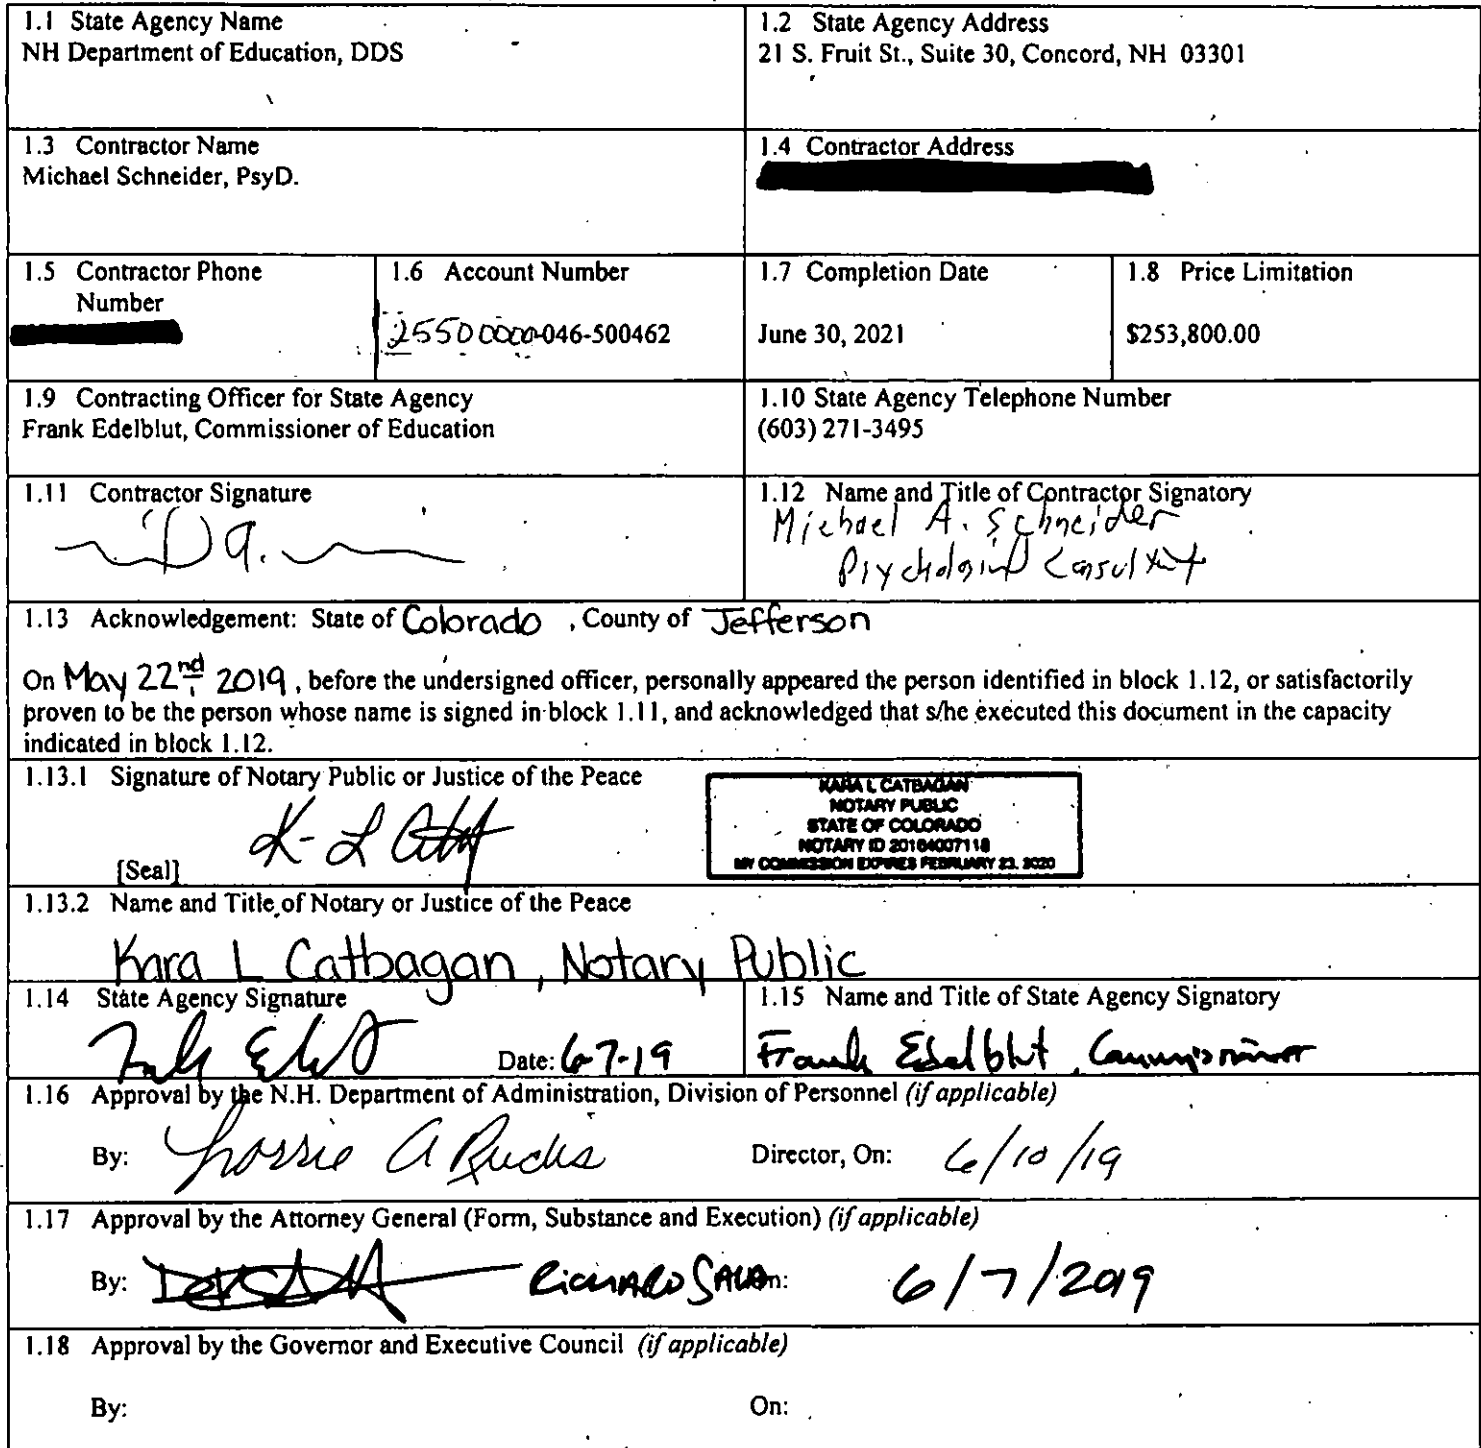 1.1 State Agency Name
NH Department of Education, DDS
1.2 State Agency Address
21 S. Fruit St., Suite 30, Concord, NH 03301
1.3 Contractor Name
Michael Schneider, PsyD.
1.4 Contractor Address
1.5 Contractor Phone
Number
1.6 Account Number
25500000-046-500462
1.7 Completion Date
June 30, 2021
1.8 Price Limitation
$253,800.00
1.9 Contracting Officer for State Agency
Frank Edelblut, Commissioner of Education
1.10 State Agency Telephone Number
(603) 271-3495
1.11 Contractor Signature
1.12 Name and Title of Contractor Signatory
Michael A. Schneider
1.13 Acknowledgement: State of Colorado , County of Jefferson
On May 22nd 2019, before the undersigned officer, personally appeared the person identified in block 1.12, or satisfactorily
proven to be the person whose name is signed in block 1.11, and acknowledged that s/he executed this document in the capacity
indicated in block 1.12.
1.13.1 Signature of Notary Public or Justice of the Peace
[Seal]
KARA L CATBAGAN
NOTARY PUBLIC
STATE OF COLORADO
NOTARY ID 20164007118
MY COMMISSION EXPIRES FEBRUARY 23, 2020
1.13.2 Name and Title of Notary or Justice of the Peace
Kara L Catbagan, Notary Public
1.14 State Agency Signature
Date: 6-7-19
1.15 Name and Title of State Agency Signatory
Frank Edelblut, Commissioner
1.16 Approval by the N.H. Department of Administration, Division of Personnel (if applicable)
By: Director, On: 6/10/19
1.17 Approval by the Attorney General (Form, Substance and Execution) (if applicable)
By: RICHARD SALA On: 6/7/2019
1.18 Approval by the Governor and Executive Council (if applicable)
By: On: